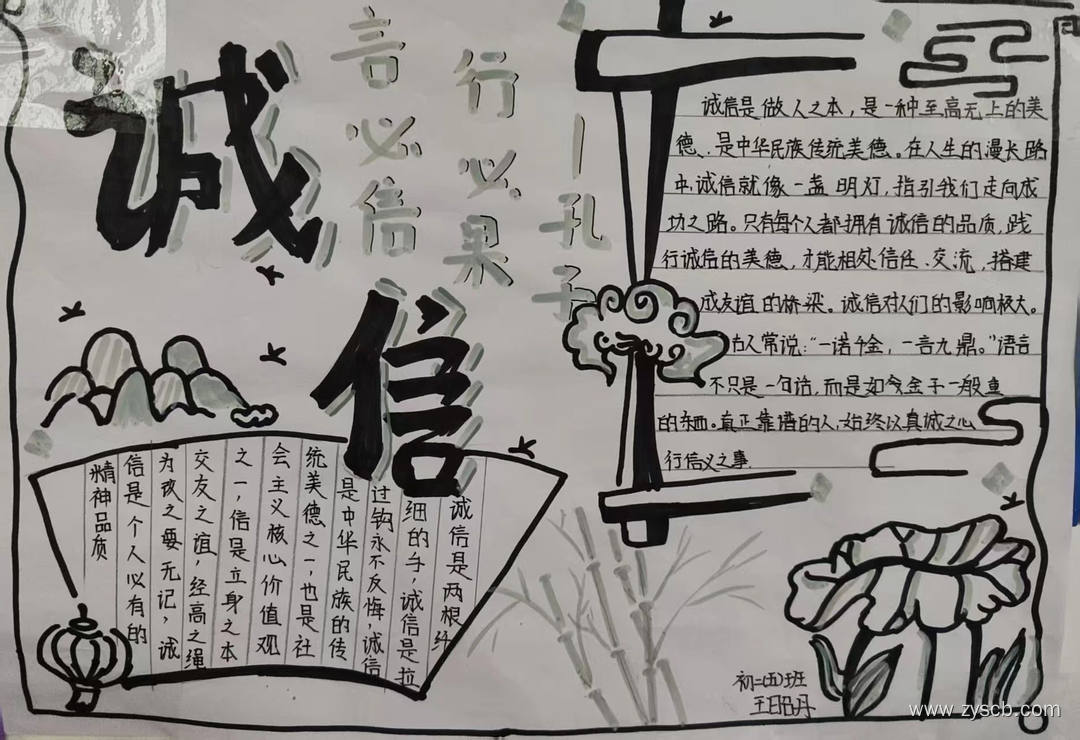 诚信
言必信
行必果
—孔子
诚信是做人之本，是一种至高无上的美
德、是中华民族传统美德。在人生的漫长路
中，诚信就像一盏明灯，指引我们走向成
功之路。只有每个人都拥有诚信的品质，践
行诚信的美德，才能相处信任、交流，搭建
成友谊的桥梁。诚信对人们的影响极大。
古人常说：“一诺千金，一言九鼎。”语言
不只是一句话，而是如令金子一般重
的东西。真正靠谱的人，始终以真诚之心
行信义之事
诚信是两根纤
细的手，诚信是拉
过钩永不反悔，诚信
是中华民族的传
统美德之一，也是社
会主义核心价值观
之一，信是立身之本
交友之谊，经商之绳
为政之要无记，诚
信是个人必有的
精神品质
初二(五)班
www.zyscb.com